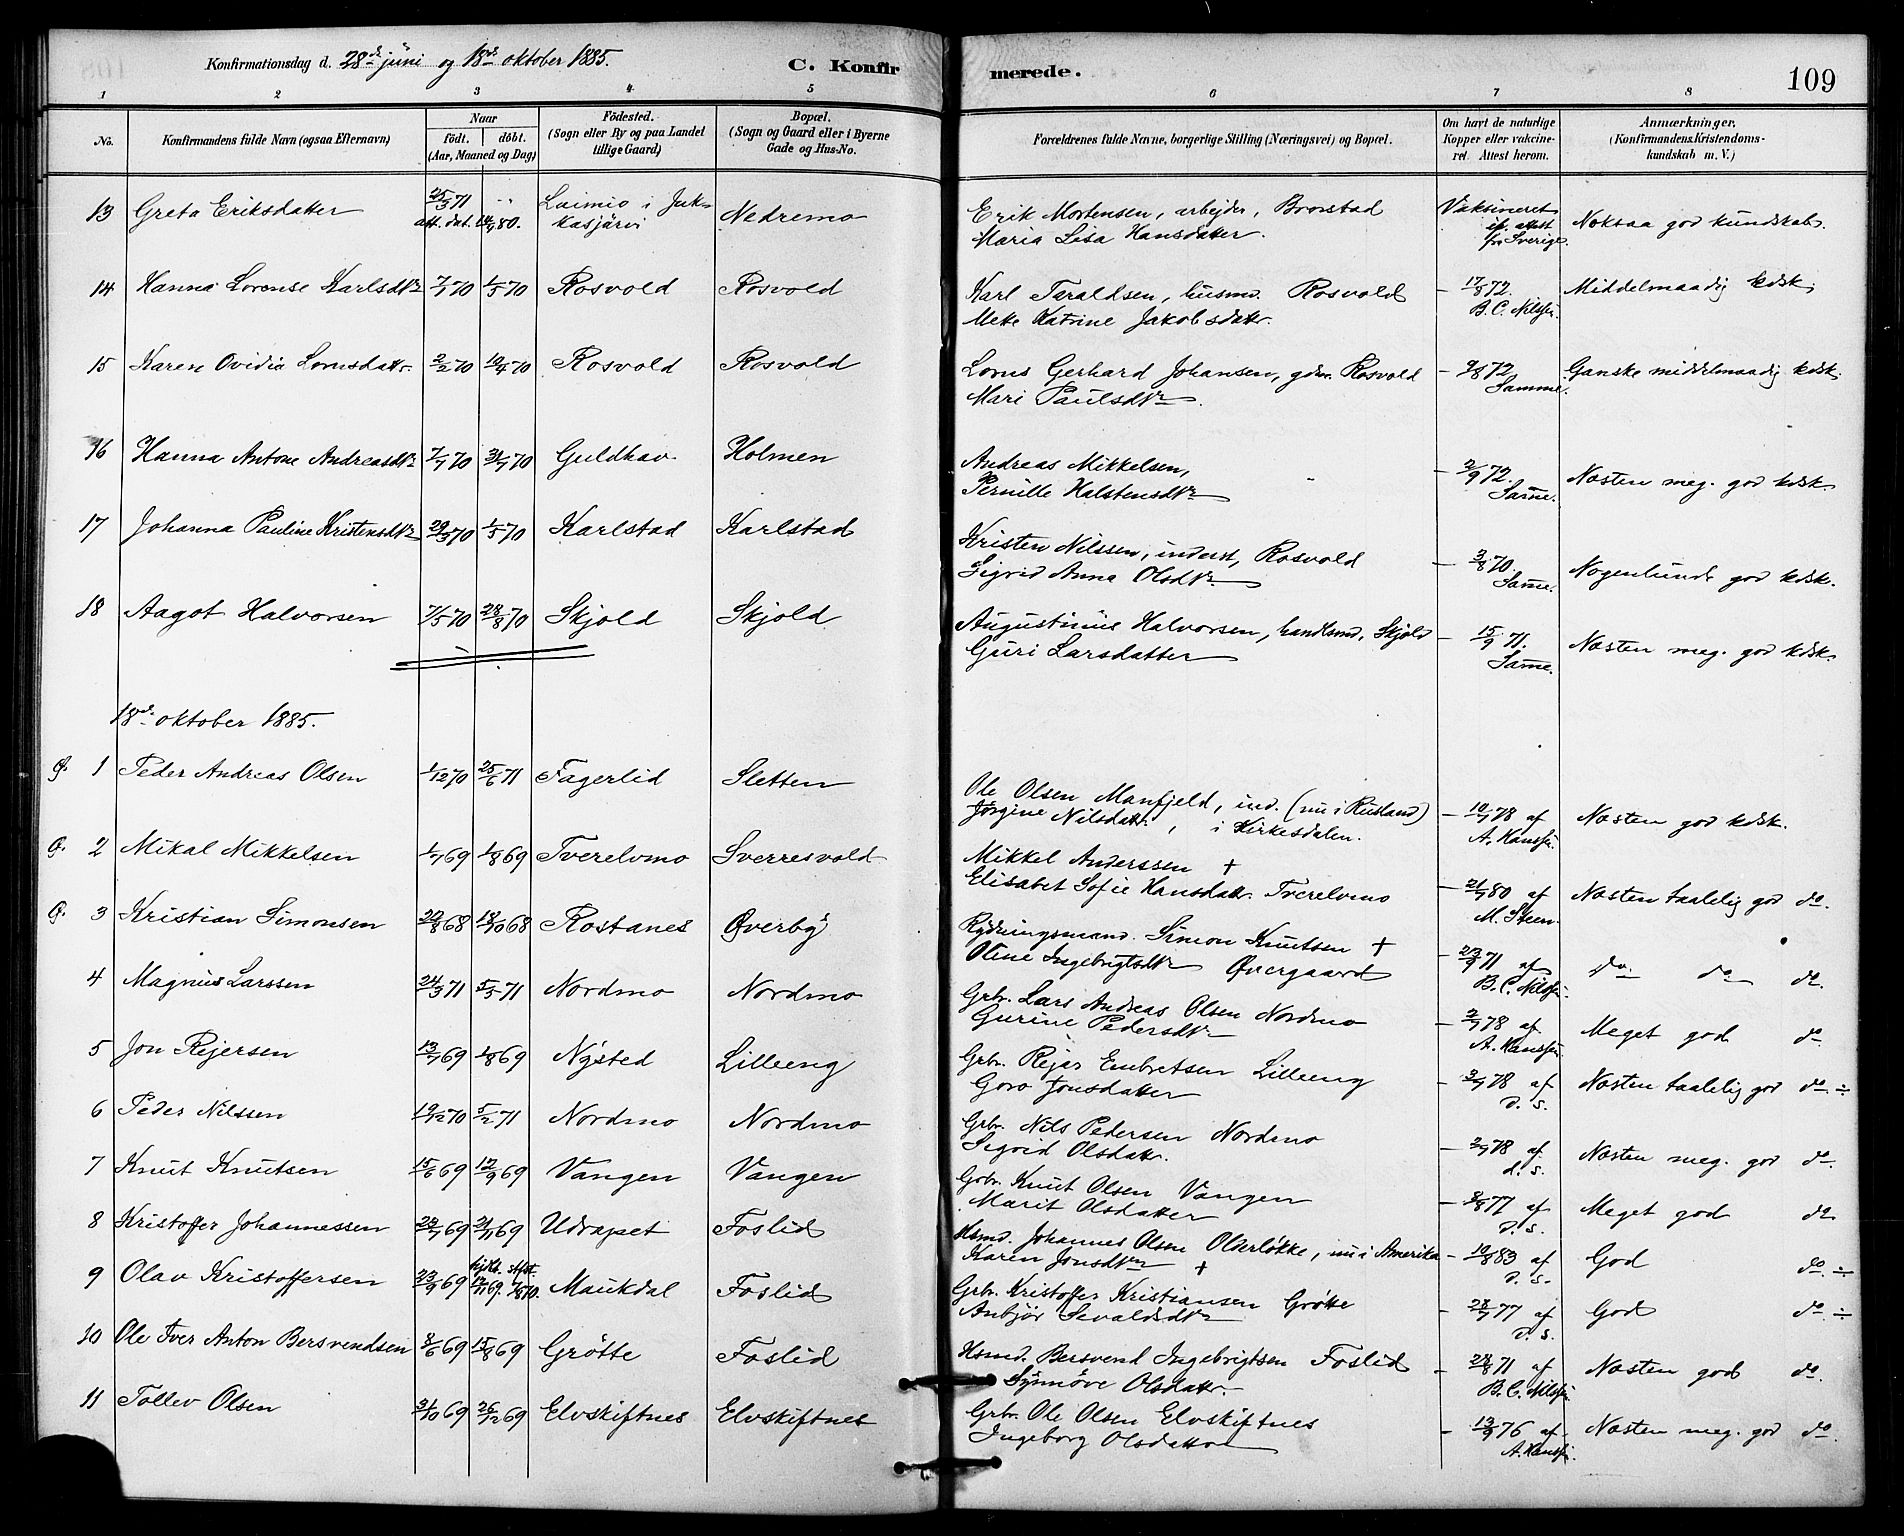 Konfirmationsdag d. 28de juni og 18de oktober 1885. C. Konfirmerede. 109
1 2 3 4 5 6 7 8
No. Konfirmandens fulde Navn (ogsaa Efternavn) Naar födt. döbt. (Aar, Maaned og Dag) Födested. (Sogn eller By og paa Landet tillige Gaard) Bopæl. (Sogn og Gaard eller i Byerne Gade og Hus-No. Forældrenes fulde Navne, borgerlige Stilling (Næringsvei) og Bopæl. Om havt de naturlige Kopper eller vakcineret. Attest herom. Anmærkninger. (Konfirmandens Kristendomskundskab m. V.)
13 Greta Eriksdatter 25/3 71 " Laimio i Juk- Nedremo Erik Mortensen, arbejder, Brorstad Vaksineret Noksaa god kundskab.
att. dat. 80. kasjärvi Maria Lisa Hansdatter. if. attest
fr. Sverige.
14 Hanna Lorense Karlsdtr 7/1 70 1/5 70 Rosvold Rosvold Karl Taraldsen, husmd. Rosvold – 17/8 72. Middelmaadig kdsk.
Mette Katrine Jakobsdattr. B. C. Nilssen.
15 Karen Ovidia Lornsdattr. 2/2 70 19/4 70 Rosvold Rosvold Lorns Gerhard Johansen, gdm. Rosvold – 9/8 72 Ganske middelmaadig kdsk.
Mari Paulsdtr. Samme.
16 Hanna Antone Andreasdtr 7/7 70 31/7 70 Guldhav Holmen Andreas Mikkelsen, " – 2/9 72. Næsten meg. god kdsk.
Pernille Halstensdtr Samme.
17 Johanna Pauline Kristensdtr 29/3 70 1/5 70 Karlstad Karlstad Kristen Nilssen, inderst, Rosvold – 3/8 70. Nogenlunde god kdsk.
Sigrid Anna Olsdtr Samme.
18 Aagot Halvorsen 7/5 70 28/8 70 Skjold Skjold Augustinus Halvorsen, handlsmd, Skjold – 15/9 71. Næsten meg. god kdsk.
Guri Larsdatter Samme.
18de oktober 1885.
Ø. 1 Peder Andreas Olsen 1/12 70 25/6 71 Fagerlid Sletten Ole Olsen Manfjeld, ind. (nu i Rusland) – 10/7 78 af Næsten god kdsk.
Jørgine Nilsdattr, i Kirkesdalen. A. Hanssen.
Ø. 2 Mikal Mikkelsen 1/7 69 1/8 69 Tverelvmo Sverresvold Mikkel Anderssen + – 21/7 80 af Næsten taalelig god do.
Elisabet Sofie Hansdattr. Tverelvmo M. Steen.
Ø. 3 Kristian Simonsen 29/8 68 18/10 68 Rostanes Øverby Rydningsmand. Simon Knutsen + – 23/9 71 af do. do do.
Oline Ingebrigtsdtr Øvergaard B. C. Nilssen.
4 Magnus Larssen 24/3 71 5/5 71 Nordmo Nordmo Grbr. Lars Andreas Olsen Nordmo – 2/7 78 af Meget god do
Gurine Pedersdtr A. Hanssen.
5 Jon Rejersen 13/7 69 1/8 69 Nysted Lilleeng Grbr. Rejer Embretsen Lilleeng – 2/7 78 af Næsten taalelig god do. ÷
Goro Jonsdatter d. s.
6 Peder Nilssen 19/12 70 5/2 71 Nordmo Nordmo Grbr. Nils Pedersen Nordmo – 2/7 78 af Næsten meg. god do.
Sigrid Olsdattr. d. s.
7 Knut Knutsen 15/6 69 12/9 69 Vangen Vangen Grbr. Knut Olsen Vangen – 8/8 77 af Meget god do.
Marit Olsdatter d. s.
8 Kristoffer Johannessen 22/7 69 21/11 69 Udrapet Foslid Hsmd. Johannes Olsen Olderløkke, nu i Amerika – 10/8 83 af God do. ÷
Karen Jonsdtr + d. s.
9 Olav Kristoffersen 23/9 69 hjdb. stfst. 12/11 69. 7/8 70. Maukdal Foslid Grbr. Kristoffer Kristiansen Grøtte – 28/7 77 af God do. ÷
Anbjør Sevaldsdtr d. s.
10 Ole Iver Anton Bersvendsen 8/6 69 15/8 69 Grøtte Foslid Hsmd. Bersvend Ingebrigtsen Foslid – 28/8 71 af Næsten god do.
Synnøve Olsdattr. B. C. Nilssen.
11 Tollev Olsen 31/10 69 26/12 69 Elvskiftnes Elvskiftnes Grbr. Ole Olsen Elvskiftnes – 13/9 76 af Næsten meg. god do.
Ingeborg Olsdatter A. Hanssen.